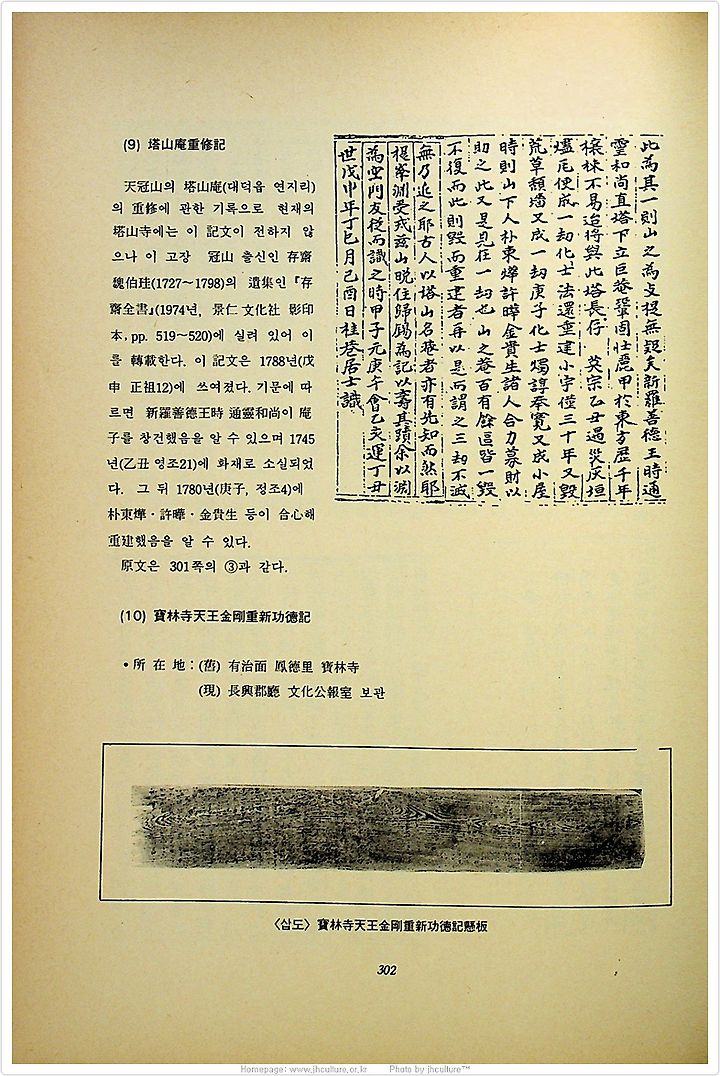 (9) 塔山庵重修記
天冠山의 塔山庵(대덕읍 연지리)
의 重修에 관한 기록으로 현재의
塔山寺에는 이 記文이 전하지 않
으나 이 고장 冠山 출신인 存齋
魏伯珪(1727～1798)의 遺集인『存
齋全書』(1974년, 景仁文化社 影印
本, pp. 519～520)에 실려 있어 이
를 轉載한다. 이 記文은 1788년(戊
申 正祖12)에 쓰여졌다. 기문에 따
르면 新羅善德王時 通靈和尚이 庵
子를 창건했음을 알 수 있으며 1745
년(乙丑 영조21)에 화재로 소실되었
다. 그 뒤 1780년(庚子, 정조4)에
朴東燁·許曄·金貴生 등이 合心해
重建했음을 알 수 있다.
原文은 301쪽의 ③과 같다.
此為其一則山之為支提無疑矣新羅善德王時通
靈和尚直塔下立巨菴鞏固壯麗甲於東方歷千年
不易迨將與此塔長存 英宗乙丑遇災灰垣
燼瓦便成一劫化士法還重建小宇僅三十年又毀
荒草頹墻又成一劫庚子化士燭諄奉寬又成小屋
時則山下人朴東燁許曄金貴生諸人合力募財以
助之此又是見在一劫也山之菴百有餘區皆一毀
不復而此則毀而重建者再以是而謂之三劫不滅
無乃近之耶古人以塔山名菴者亦有先知而然耶
提峯淵受戒茲山晚住歸為記以壽其蹟余以淵
為空門友從而識之時甲子元庚午會乙亥運丁丑
世戊申年丁巳月己酉日桂巷居士識
(10) 寶林寺天王金剛重新功德記
•所 在 地 : (舊) 有治面 鳳德里 寶林寺
(現) 長興郡廳 文化公報室 보관
〈삽도〉寶林寺天王金剛重新功德記懸板
302
Homepage: www.jhculture.or.kr Photo by jhculture™